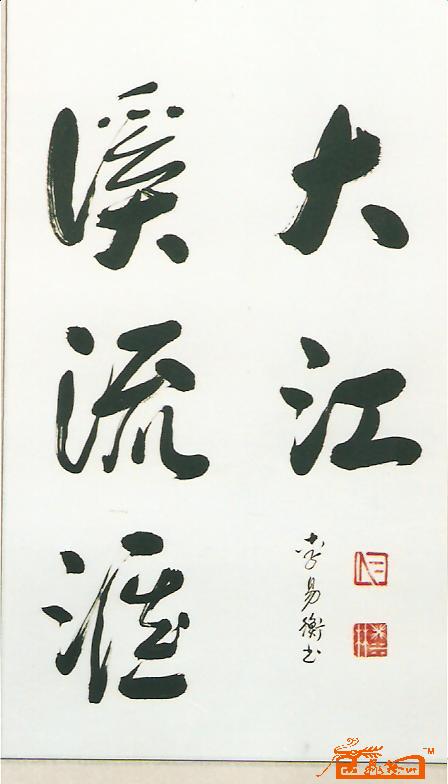 大江
李易衡书
溪流滙
TM